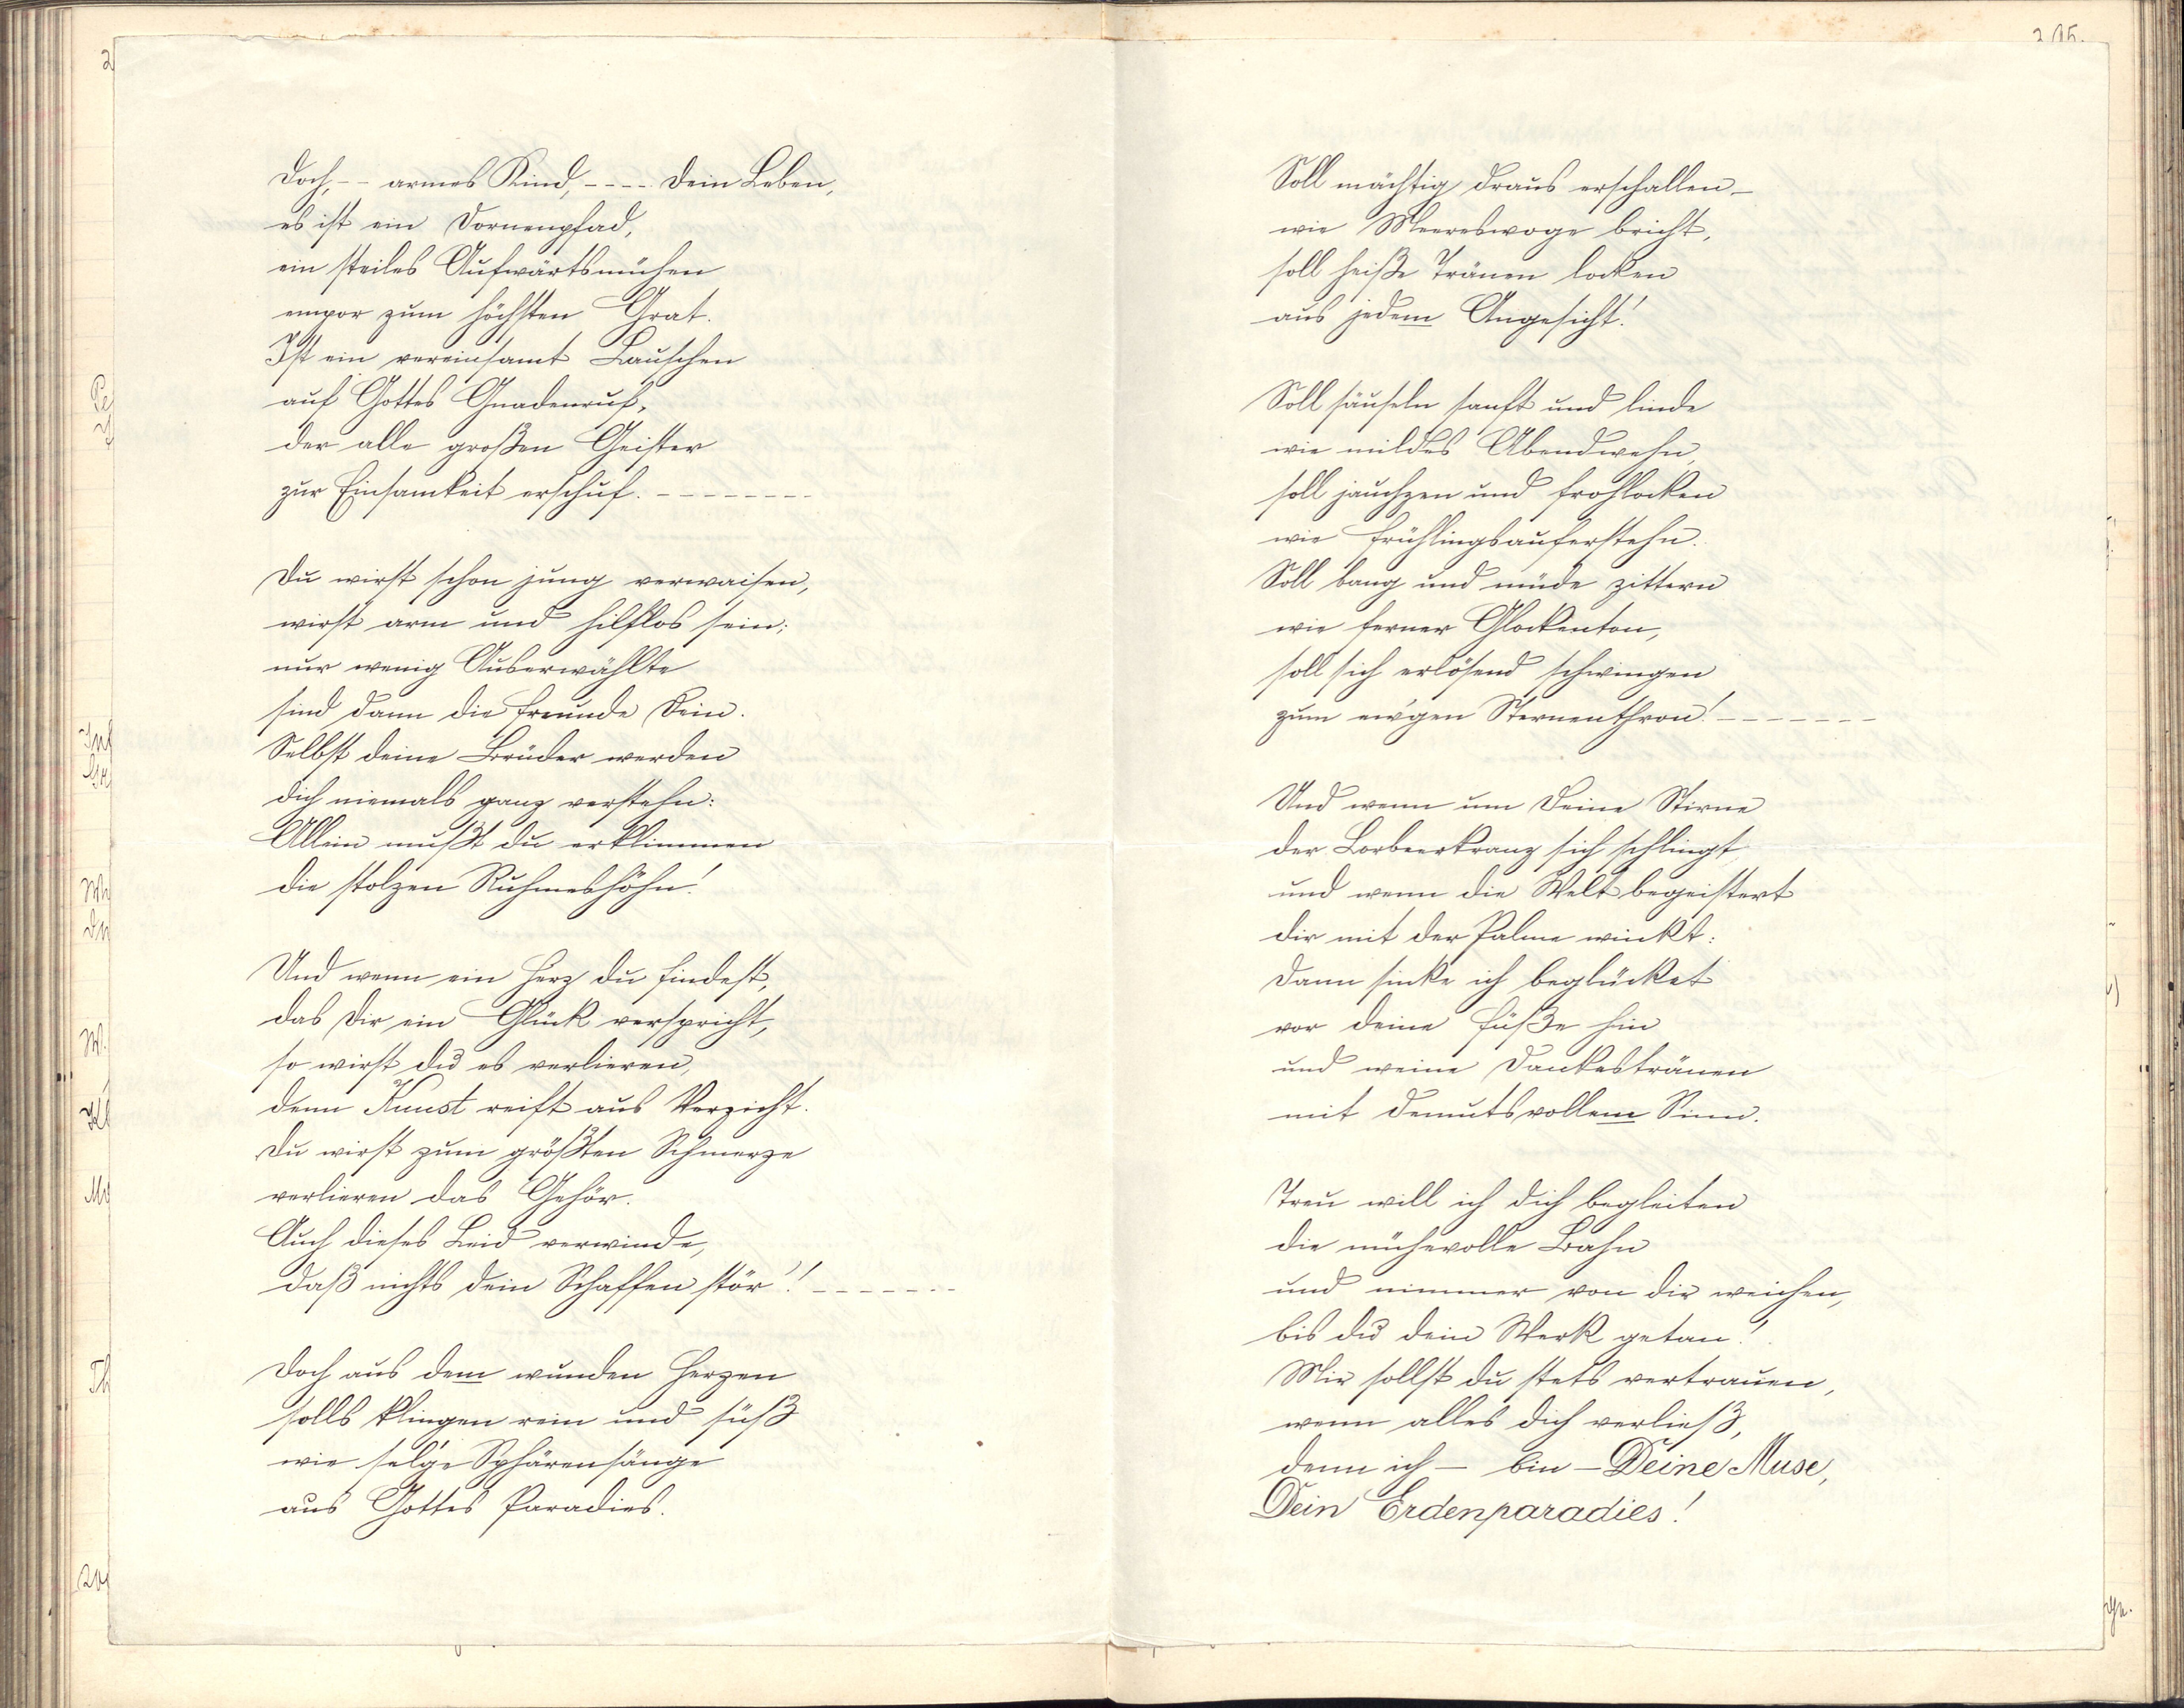 Doch, -- armes Kind, ---- Dein Leben,
es ist ein Dornenpfad,
ein steiles Aufwärtsmühen
empor zum höchsten Grat.
Ist ein vereinsamt Lauschen
auf Gottes Gnadenruf,
der alle großen Geister
zur Einsamkeit erschuf. --------
Du wirst schon jung verwaisen,
wirst arm und hilflos sein;
nur wenig Auserwählte
sind dann die Freunde Dein.
Selbst deine Brüder werden
dich niemals ganz verstehn:
Allein mußt du erklimmen
die stolzen Ruhmeshöhn!
Und wenn ein Herz du findest,
das Dir ein Glück verspricht,
so wirst du es verlieren,
denn Kunst reift aus Verzicht.
Du wirst zum größten Schmerze
verlieren das Gehör.
Auch dieses Leid verwinde,
daß nichts dein Schaffen stör'! -------
Doch aus dem wunden Herzen
solls klingen rein und süß
wie sel'ge Sphärensänge
aus Gottes Paradies.
Soll mächtig draus erschallen –
wie Meereswoge bricht,
soll heiße Tränen locken
aus jedem Angesicht!
Soll säuseln sanft und linde
wie mildes Abendwehn,
soll jauchzen und frohlocken
wie Frühlingsauferstehn.
Soll bang und müde zittern
wie ferner Glockenton,
soll sich erlösend schwingen
zum ew'gen Sternenthron! -------
Und wenn um Deine Stirne
der Lorbeerkranz sich schlingt,
und wenn die Welt begeistert
dir mit der Palme winkt:
Dann sinke ich beglücket
vor deine Füße hin
und weine Dankestränen
mit demutsvollem Sinn.
Treu will ich dich begleiten
die mühevolle Bahn
und nimmer von dir weichen,
bis du dein Werk getan!
Mir sollst du stets vertrauen,
wenn alles dich verließ,
denn ich – bin – Deine Muse,
Dein Erdenparadies!